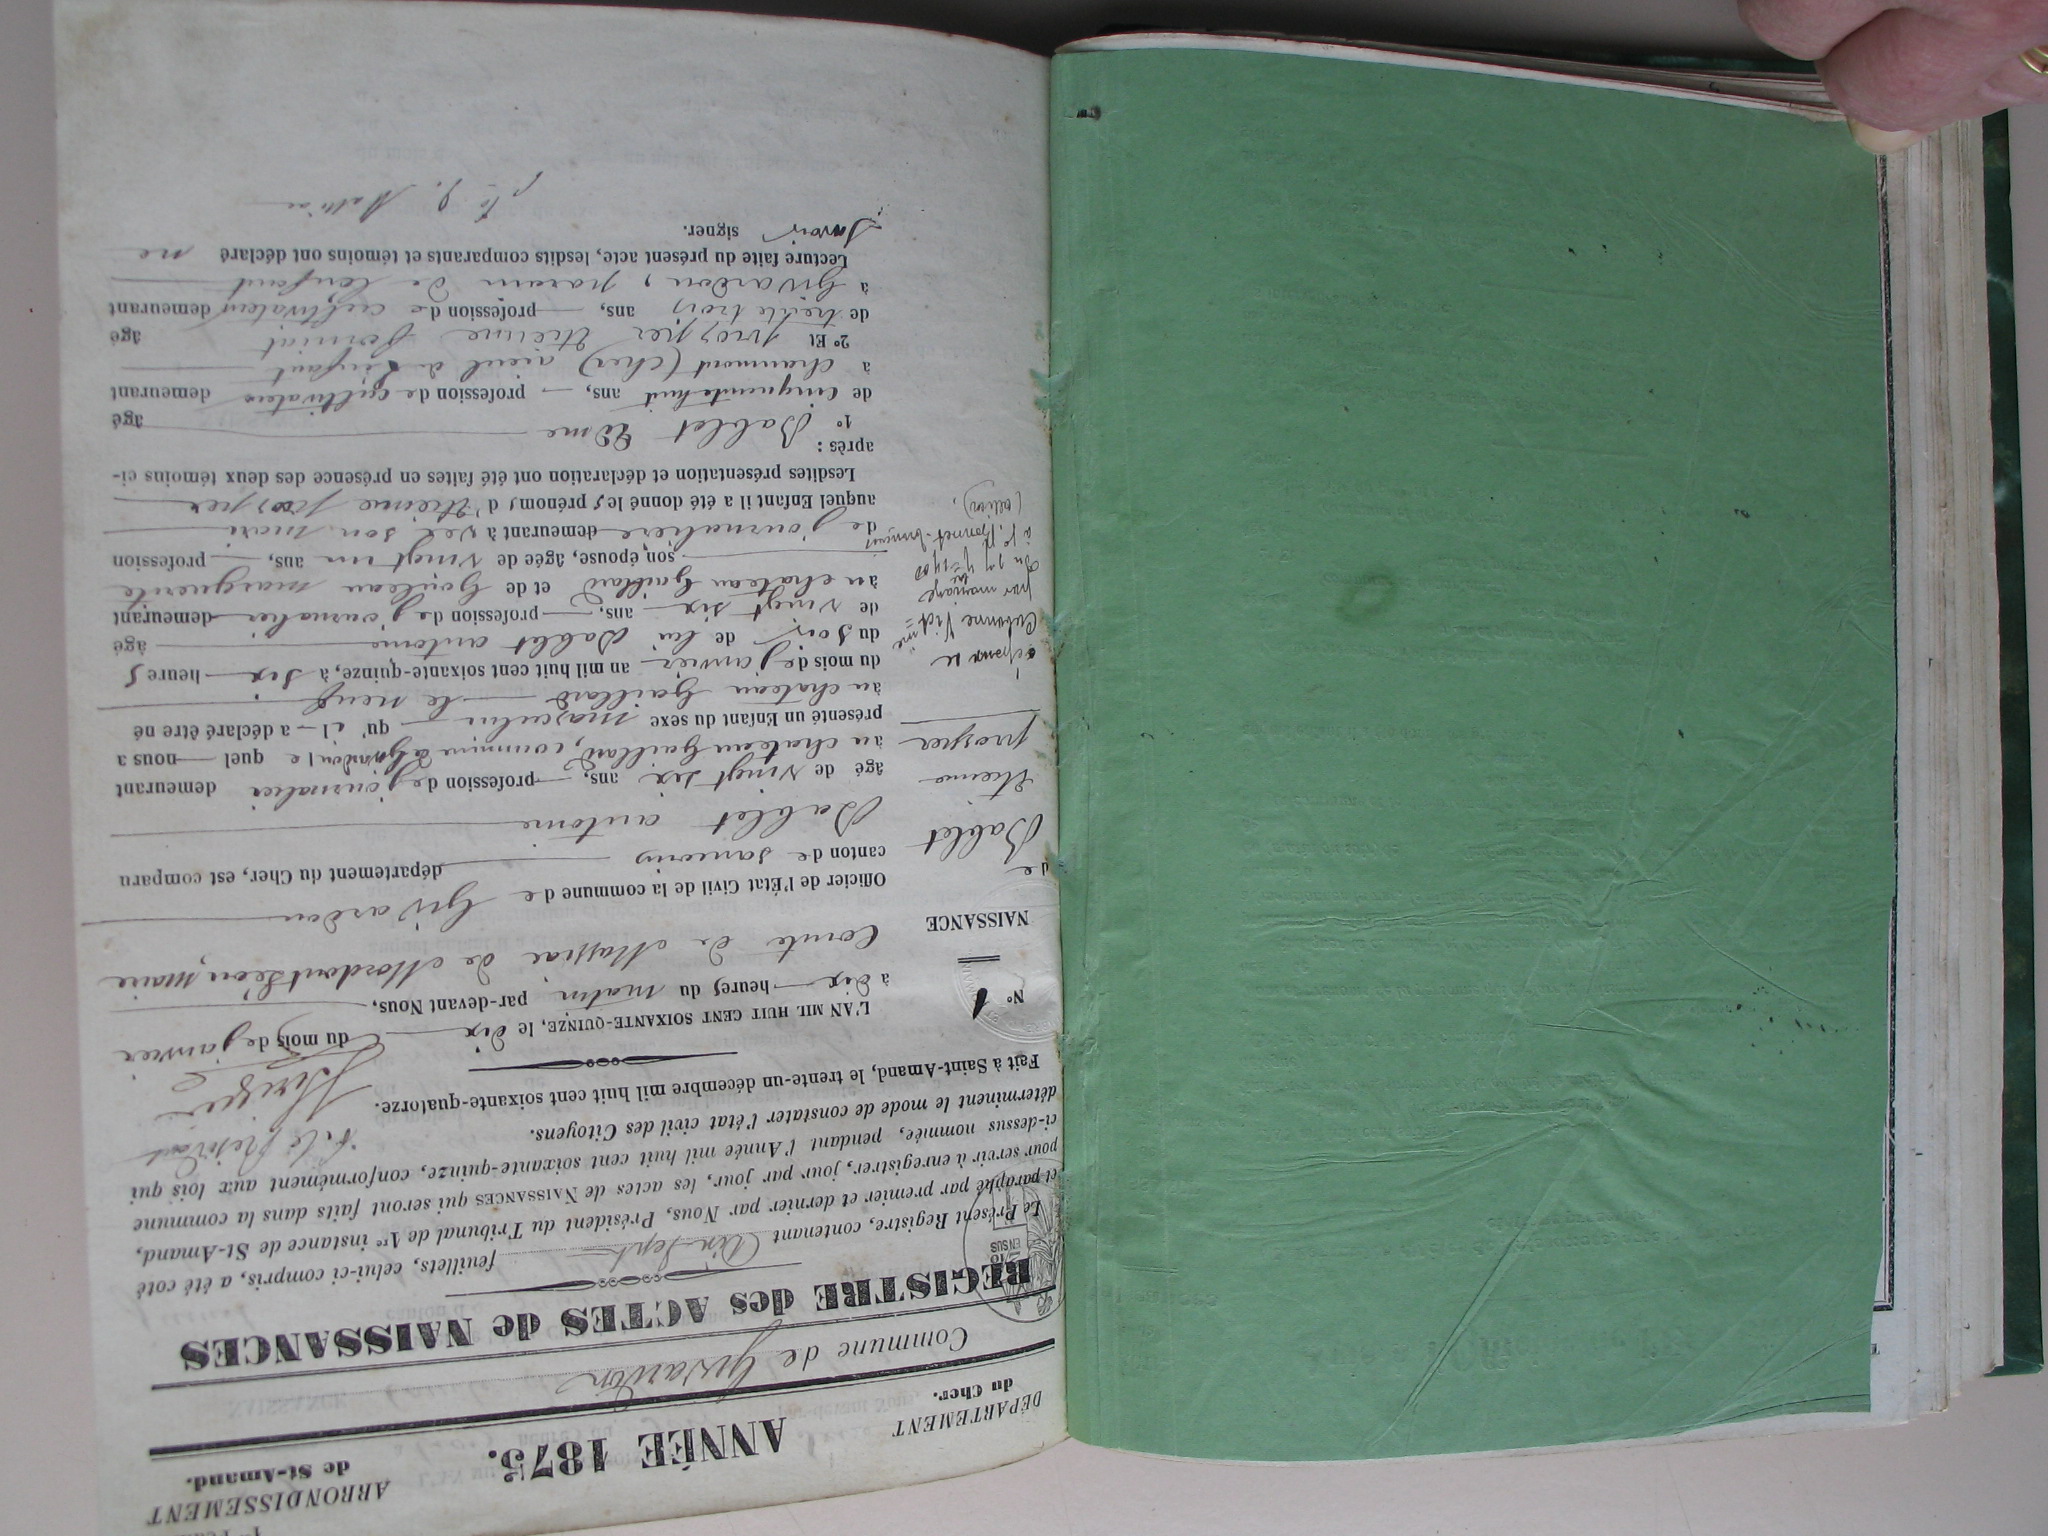 DÉPARTEMENT
du Cher.
ANNÉE 1875.
ARRONDISSEMENT
de St-Amand.
Commune de Givardon
REGISTRE des ACTES de NAISSANCES
Le Présent Registre, contenant Dix Sept feuillets, celui-ci compris, a été coté
et paraphé par premier et dernier par Nous, Président du Tribunal de 1re instance de St-Amand,
pour servir à enregistrer, jour par jour, les actes de NAISSANCES qui seront faits dans la commune
ci-dessus nommée, pendant l'Année mil huit cent soixante-quinze, conformément aux lois qui
déterminent le mode de constater l'état civil des Citoyens.
Fait à Saint-Amand, le trente-un décembre mil huit cent soixante-quatorze.
N° 1
NAISSANCE
de
Bablet
étienne
prosper
épousé
par mariage
(Allier).
L'AN MIL HUIT CENT SOIXANTE-QUINZE, le dix du mois de janvier
à dix heures du matin, par-devant Nous,
Comte de de Mordant Léon, maire
Officier de l'État Civil de la commune de Givardon
canton de Sancoins département du Cher, est comparu
Bablet antoine
âgé de vingt six ans, profession de journalier demeurant
au chateau Gaillard, commune de Givardon le quel nous a
présenté un Enfant du sexe masculin qu'il a déclaré être né
au chateau Gaillard le neuf
du mois de janvier an mil huit cent soixante-quinze, à six heures
du soir de lui Bablet antoine âgé
de vingt six ans, profession de journalier demeurant
au chateau Gaillard et de Gouleau marguerite
son épouse, âgée de vingt un ans, profession
de journalière demeurant avec son mari
auquel Enfant il a été donné les prénoms d'étienne prosper
Lesdites présentation et déclaration ont été faites en présence des deux témoins ci-
après :
1° Bablet Edme âgé
de cinquante huit ans, profession de cultivateur demeurant
à chaumont (cher) aieul de l'enfant
2° Et prosper étienne âgé
de trente trois ans, profession de cultivateur demeurant
à Givardon, parain de l'enfant
Lecture faite du présent acte, lesdits comparants et témoins ont déclaré ne
savoir signer.